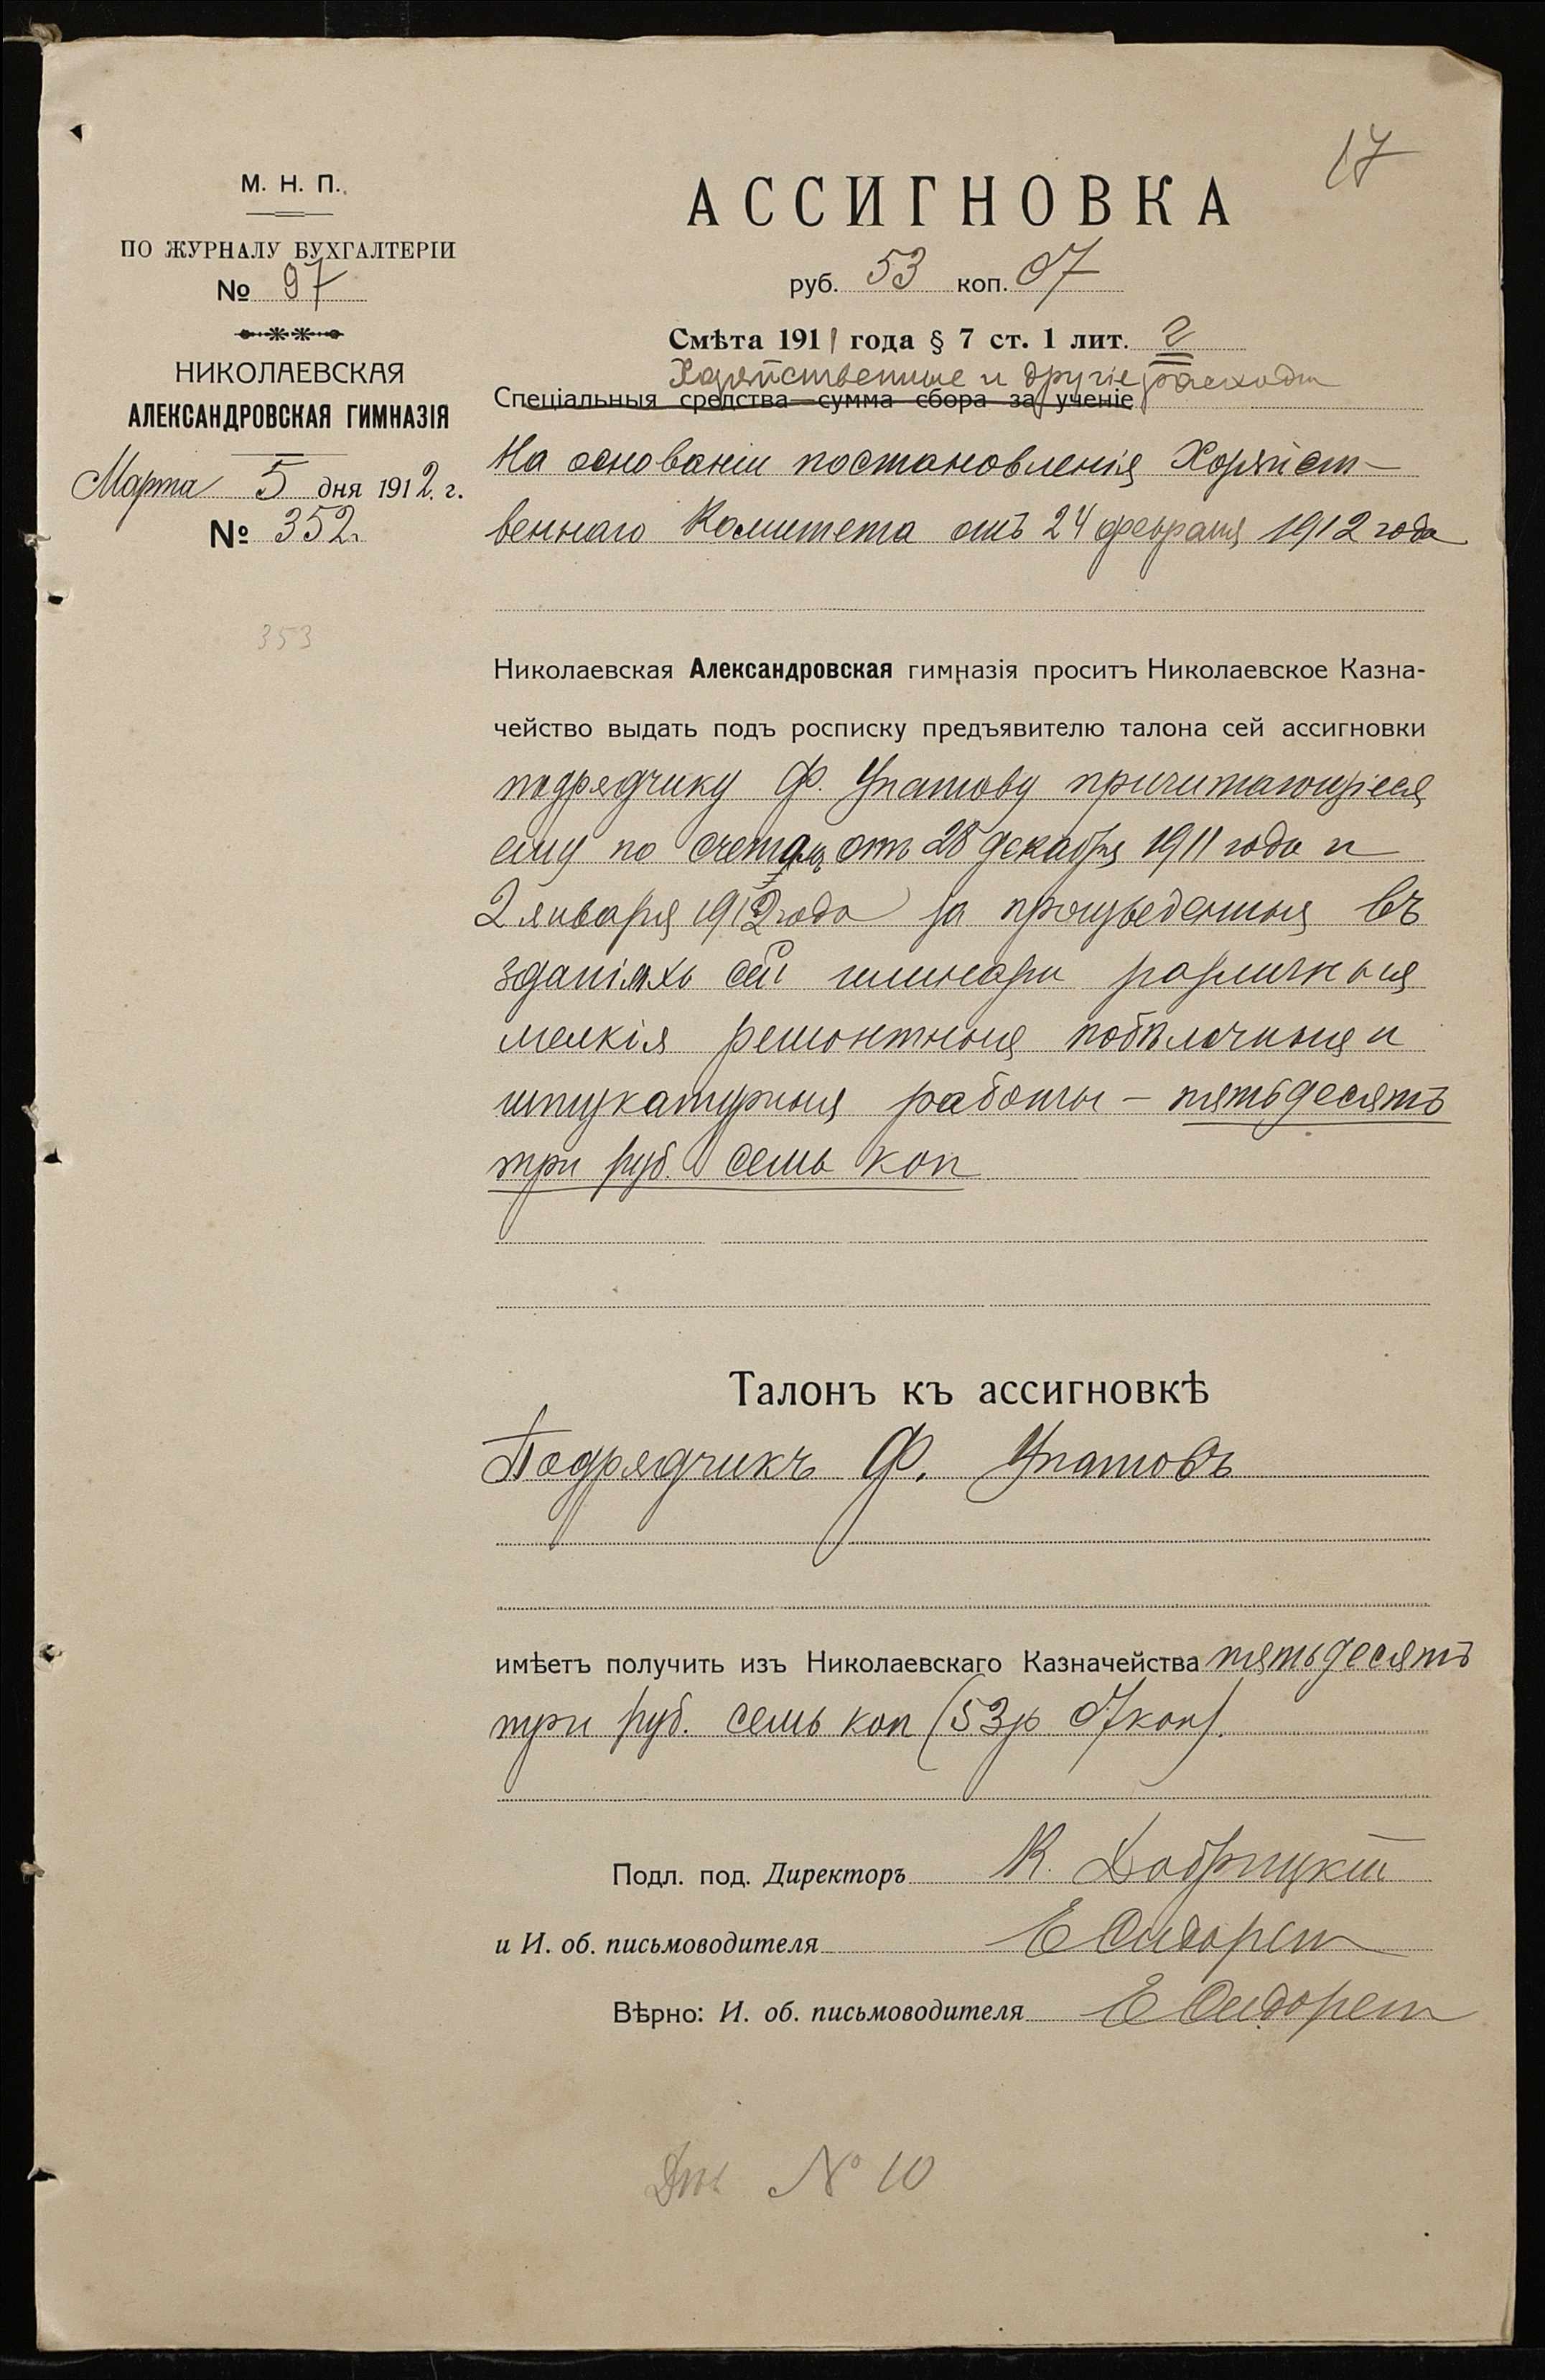 17
М. Н. П.
ПО ЖУРНАЛУ БУХГАЛТЕРІИ
№ 97
НИКОЛАЕВСКАЯ
АЛЕКСАНДРОВСКАЯ ГИМНАЗІЯ
Марта 5 дня 1912. г.
№ 352
353
АССИГНОВКА
руб. 53 коп. 07
Смѣта 1911 года § 7 ст. 1 лит. г
Хозяйственные и другіе расходы
Спеціальныя средства—сумма сбора за ученіе
На основаніи постановленія Хозяйст-
веннаго Комитета отъ 24 февраля 1912 года
Николаевская Александровская гимназія проситъ Николаевское Казна-
чейство выдать подъ росписку предъявителю талона сей ассигновки
подрядчику Ф. Упатову причитающіеся
ему по счетамъ отъ 28 декабря 1911 года и
2 января 1912 года за произведенныя въ
зданіяхъ сей гимназіи различныя
мелкія ремонтныя побѣлочныя и
штукатурныя работы — пятьдесятъ
три руб. семь коп
Талонъ къ ассигновкѣ
Подрядчикъ Ф. Упатовъ
имѣетъ получить изъ Николаевскаго Казначейства пятьдесятъ
три руб. семь коп (53 р 07 коп).
Подл. под. Директоръ К. Добрицкій
и И. об. письмоводителя Е
Вѣрно: И. об. письмоводителя Е
№ 10